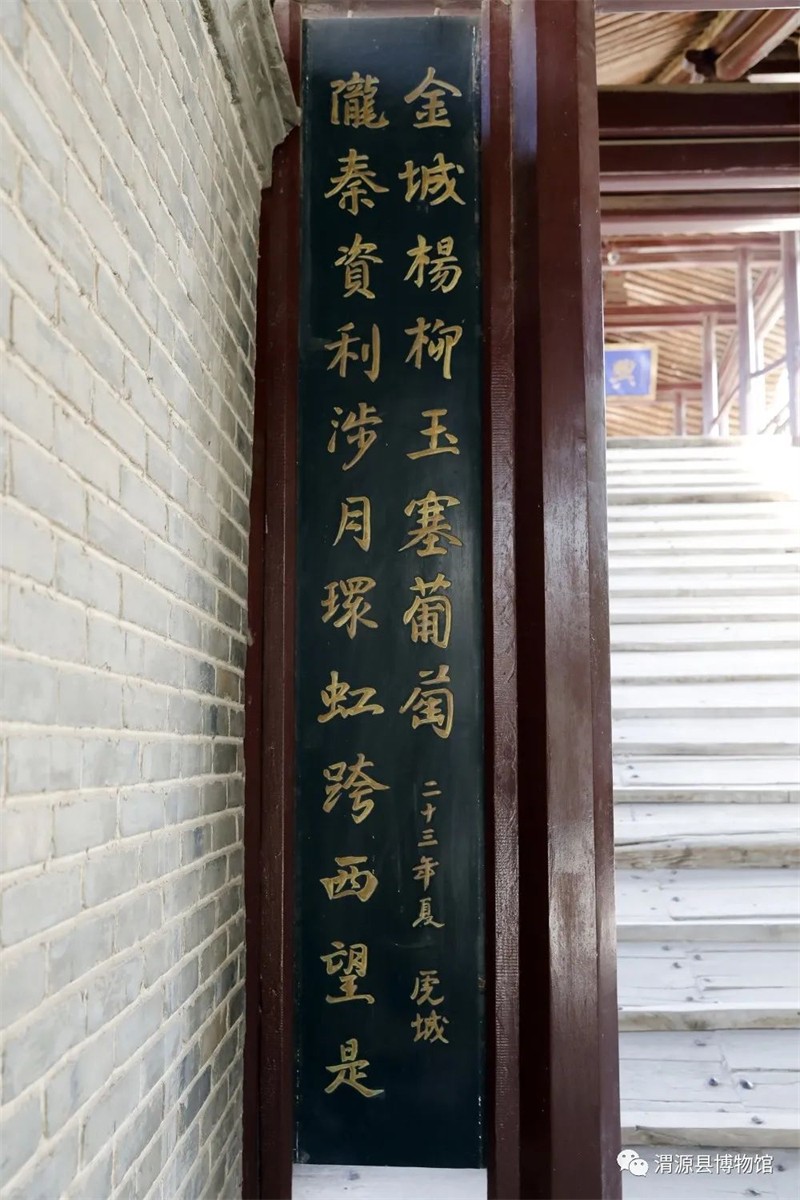 隴秦資利涉月環虹跨西望是
金城楊柳玉塞葡萄
二十三年夏 虎城
渭源县博物馆